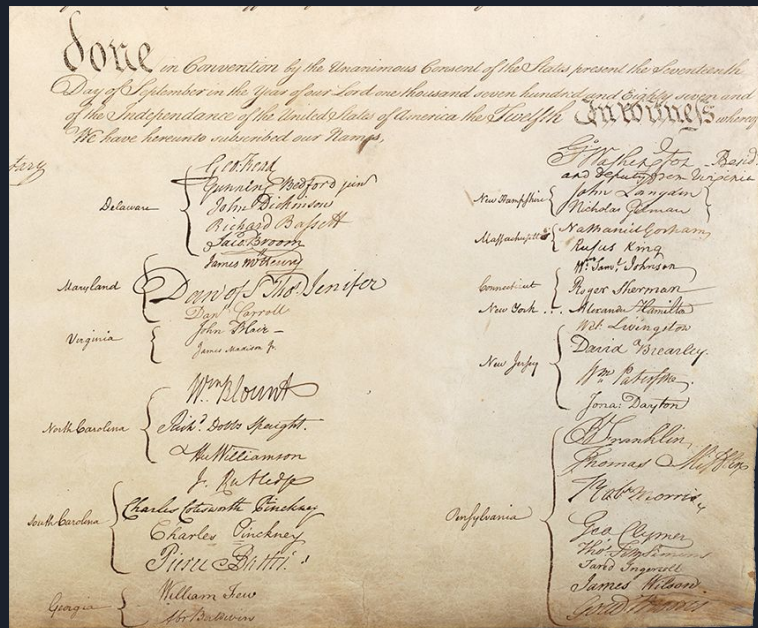 done in Convention by the Unanimous Consent of the States present the Seventeenth
Day of September in the Year of our Lord one thousand seven hundred and Eighty seven and
of the Independance of the United States of America the Twelfth In witness whereof
We have hereunto subscribed our Names,
Delaware
Geo: Read
Gunning Bedford jun
John Dickinson
Richard Bassett
Jaco: Broom
Maryland
James McHenry
Dan of St Thos. Jenifer
Danl Carroll
Virginia
John Blair—
James Madison Jr.
North Carolina
Wm Blount
Richd. Dobbs Spaight.
Hu Williamson
South Carolina
J. Rutledge
Charles Cotesworth Pinckney
Charles Pinckney
Pierce Butler.
Georgia
William Few
Abr Baldwin
Go. Washington Presidt.
and deputy from Virginia
New Hampshire
John Langdon
Nicholas Gilman
Massachusetts
Nathaniel Gorham
Rufus King
Connecticut
Wm. Saml. Johnson
Roger Sherman
New York . . .
Alexander Hamilton
New Jersey
Wil: Livingston
David Brearley.
Wm. Paterson.
Jona: Dayton
Pensylvania
B Franklin
Thomas Mifflin
Robt Morris
Geo. Clymer
Thos. FitzSimons
Jared Ingersoll
James Wilson
Gouv Morris